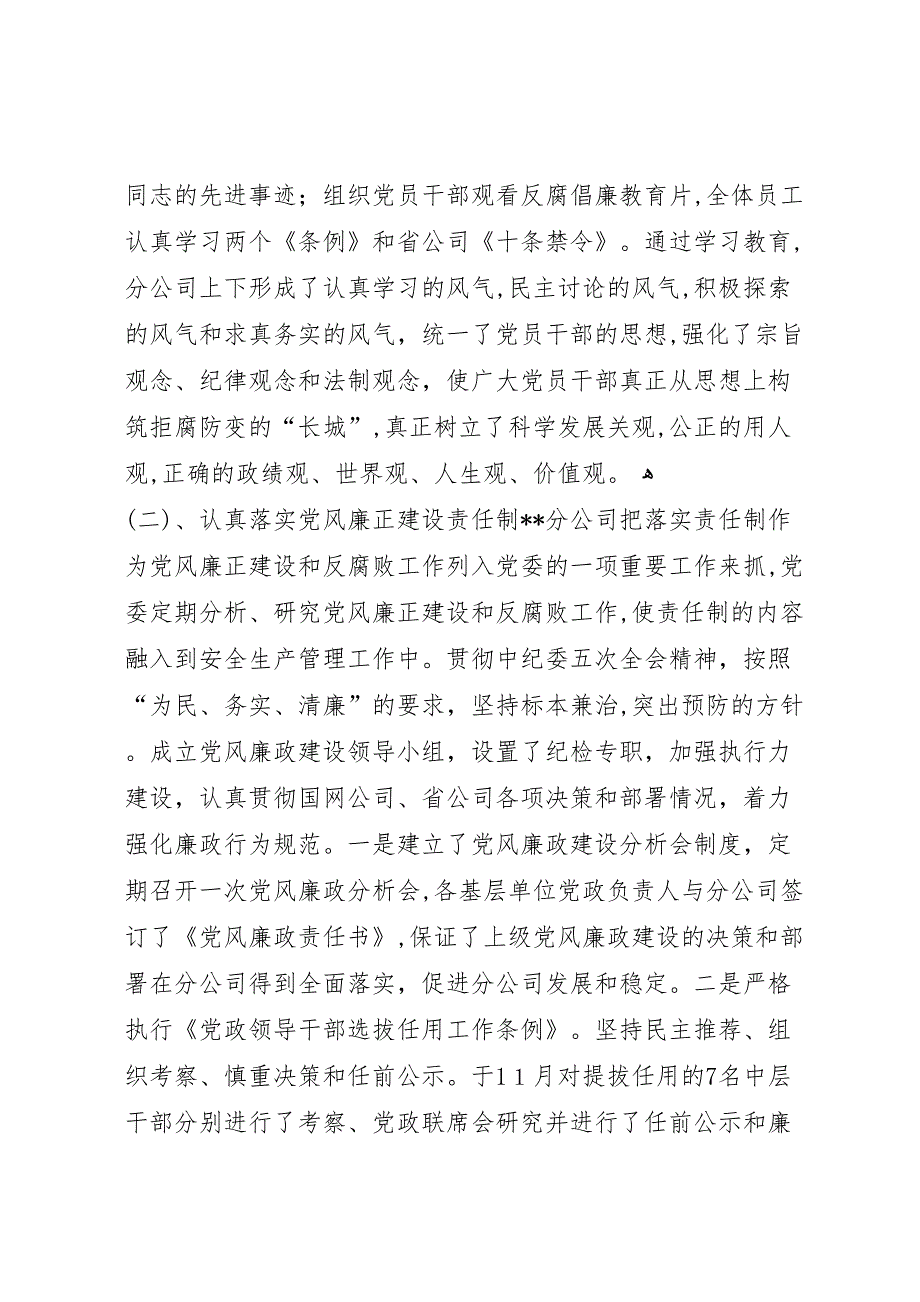 同志的先进事迹；组织党员干部观看反腐倡廉教育片,全体员工
认真学习两个《条例》和省公司《十条禁令》。通过学习教育,
分公司上下形成了认真学习的风气,民主讨论的风气,积极探索
的风气和求真务实的风气，统一了党员干部的思想,强化了宗旨
观念、纪律观念和法制观念，使广大党员干部真正从思想上构
筑拒腐防变的“长城”,真正树立了科学发展关观,公正的用人
观,正确的政绩观、世界观、人生观、价值观。 ﻫ
(二)、认真落实党风廉正建设责任制**分公司把落实责任制作
为党风廉正建设和反腐败工作列入党委的一项重要工作来抓,党
委定期分析、研究党风廉正建设和反腐败工作,使责任制的内容
融入到安全生产管理工作中。贯彻中纪委五次全会精神，按照
“为民、务实、清廉”的要求，坚持标本兼治,突出预防的方针
。成立党风廉政建设领导小组，设置了纪检专职，加强执行力
建设，认真贯彻国网公司、省公司各项决策和部署情况，着力
强化廉政行为规范。一是建立了党风廉政建设分析会制度，定
期召开一次党风廉政分析会,各基层单位党政负责人与分公司签
订了《党风廉政责任书》,保证了上级党风廉政建设的决策和部
署在分公司得到全面落实，促进分公司发展和稳定。二是严格
执行《党政领导干部选拔任用工作条例》。坚持民主推荐、组
织考察、慎重决策和任前公示。于1１月对提拔任用的7名中层
干部分别进行了考察、党政联席会研究并进行了任前公示和廉